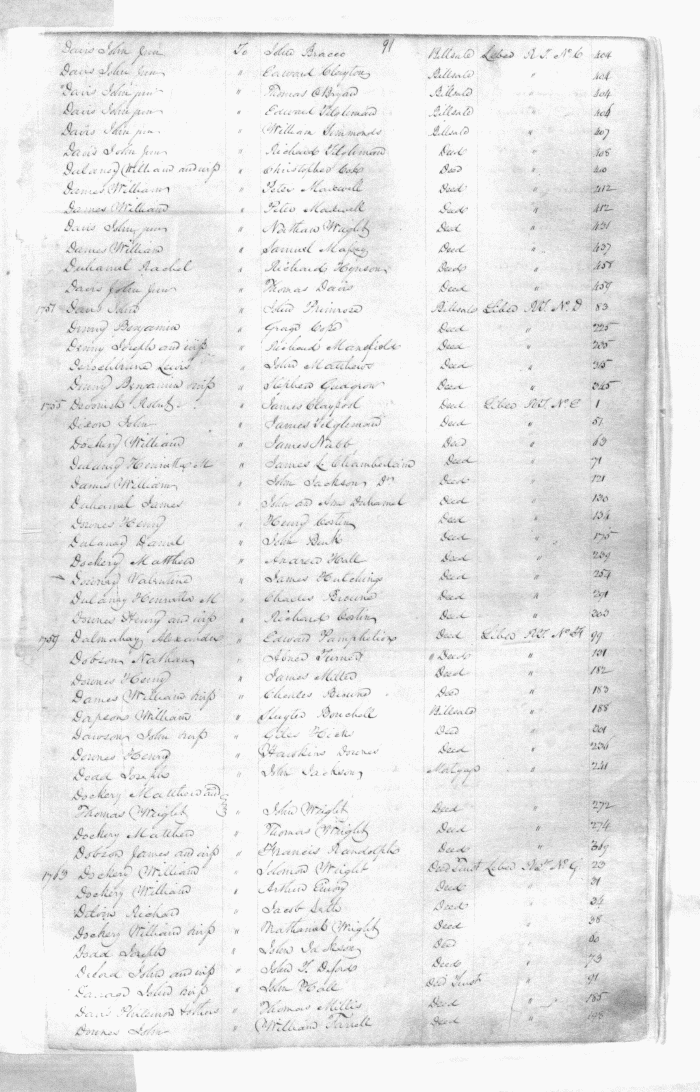 91
Davis John Jun To John Bracco Billsale Liber R.T. No. C 404
Davis John Jun " Edward Clayton Billsale " 404
Davis John jun " Thomas Bryard Billsale " 404
Davis John jun " Edward Tilghman Billsale " 404
Davis John jun " William Simmonds Billsale " 407
Davis John Jun " Richard Tilghman Deed " 408
Dulaney William and wife " Christopher Cox Deed " 410
Dames William " Peter Maxwell Deed " 412
Dames William " Peter Maxwell Deed " 412
Davis John jun " Nathan Wright Deed " 431
Dames William " Samuel Massey Deed " 437
Duhamel Rachel " Richard Hynson Deed " 457
Davis John Jun " Thomas Davis Deed " 459
1751 Davis John " John Primrose Billsale Liber R.T. No. D 83
Denny Benjamin " Deed " 225
Denny Joseph and wife " Richard Mansfield Deed " 235
Lewis " John Matthews Deed " 315
Denny Benjamin & wife " Stephen Deed " 345
1755 Devonish " James Claypool Deed Liber R.T. No. E 1
Dixon John " James Tilghman Deed " 51
Dockery William " James Nabb Deed " 63
Dulany Henrietta M " James L. Chamberlaine Deed " 71
Dames William " John Jackson Deed " 121
Duhamel James " John and Ann Duhamel Deed " 130
Downes Henry " Henry Costin Deed " 134
Dulanay Daniel " John Beck Deed " 175
Dockery Matthew " Andrew Hall Deed " 239
Downey Valentine " James Hutchings Deed " 254
Dulany Henrietta M " Charles Browne Deed " 291
Downes Henry and wife " Richard Costin Deed " 303
1759 Dalmahay Alexander " Edward Pamphelion Deed Liber R.T. No. F 99
Dobson Nathan " Abner Turner " Deed " 131
Downes Henry " James Miller Deed " 182
Dames William & wife " Charles Browne Deed " 183
Dapson William " Slayter Bouchell Billsale " 188
Dawson John & wife " Giles Hicks Deed " 201
Downes Henry " Hawkins Downes Deed " 236
Dodd Joseph " John Jackson Mortgage " 241
Dockery Matthew and
Thomas Wright " John Wright Deed " 272
Dockery Matthew " Thomas Wright Deed " 274
Dobson James and wife " Francis Randolph Deed " 319
1763 Dockery William " Solomon Wright Deed Trust Liber R.T. No. G 23
Dockery William " Arthur Emory Deed " 31
Richard " Jacob Deed " 34
Dockery William & wife " Nathaniel Wright Deed " 38
Dodd Joseph " John Jackson Deed " 60
Deford John and wife " John T. Deford Deed " 73
John & wife " John Hall Deed Trust " 91
Davis Philemon & others " Thomas Miller Deed " 185
Downes John " William Farrell Deed " 198